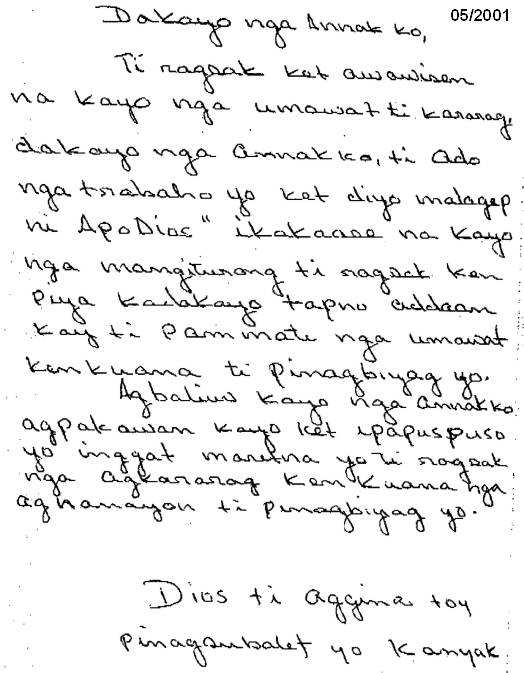 05/2001
Dakayo nga Annak ko,
Ti ragsak ket awawisen
na kayo nga umawat ti kararag,
dakayo nga annak ko, ti ado
nga trabaho yo ket diyo malagep
ni Apo Dios " ikakaase na kayo
nga mangiturong ti ragsak ken
piya kadakayo tapno addaan
kay ti pammati nga umawat
kenkuana ti pinagbiyag yo.
Agbaliw kayo nga annak ko
agpakawan kayo ket ipapuspuso
yo inggat marikna yo ti ragsak
nga agkararag kenkuana nga
aghanayon ti pinagbiyag yo.
Dios ti aggina toy
pinagsubalet yo kanyak